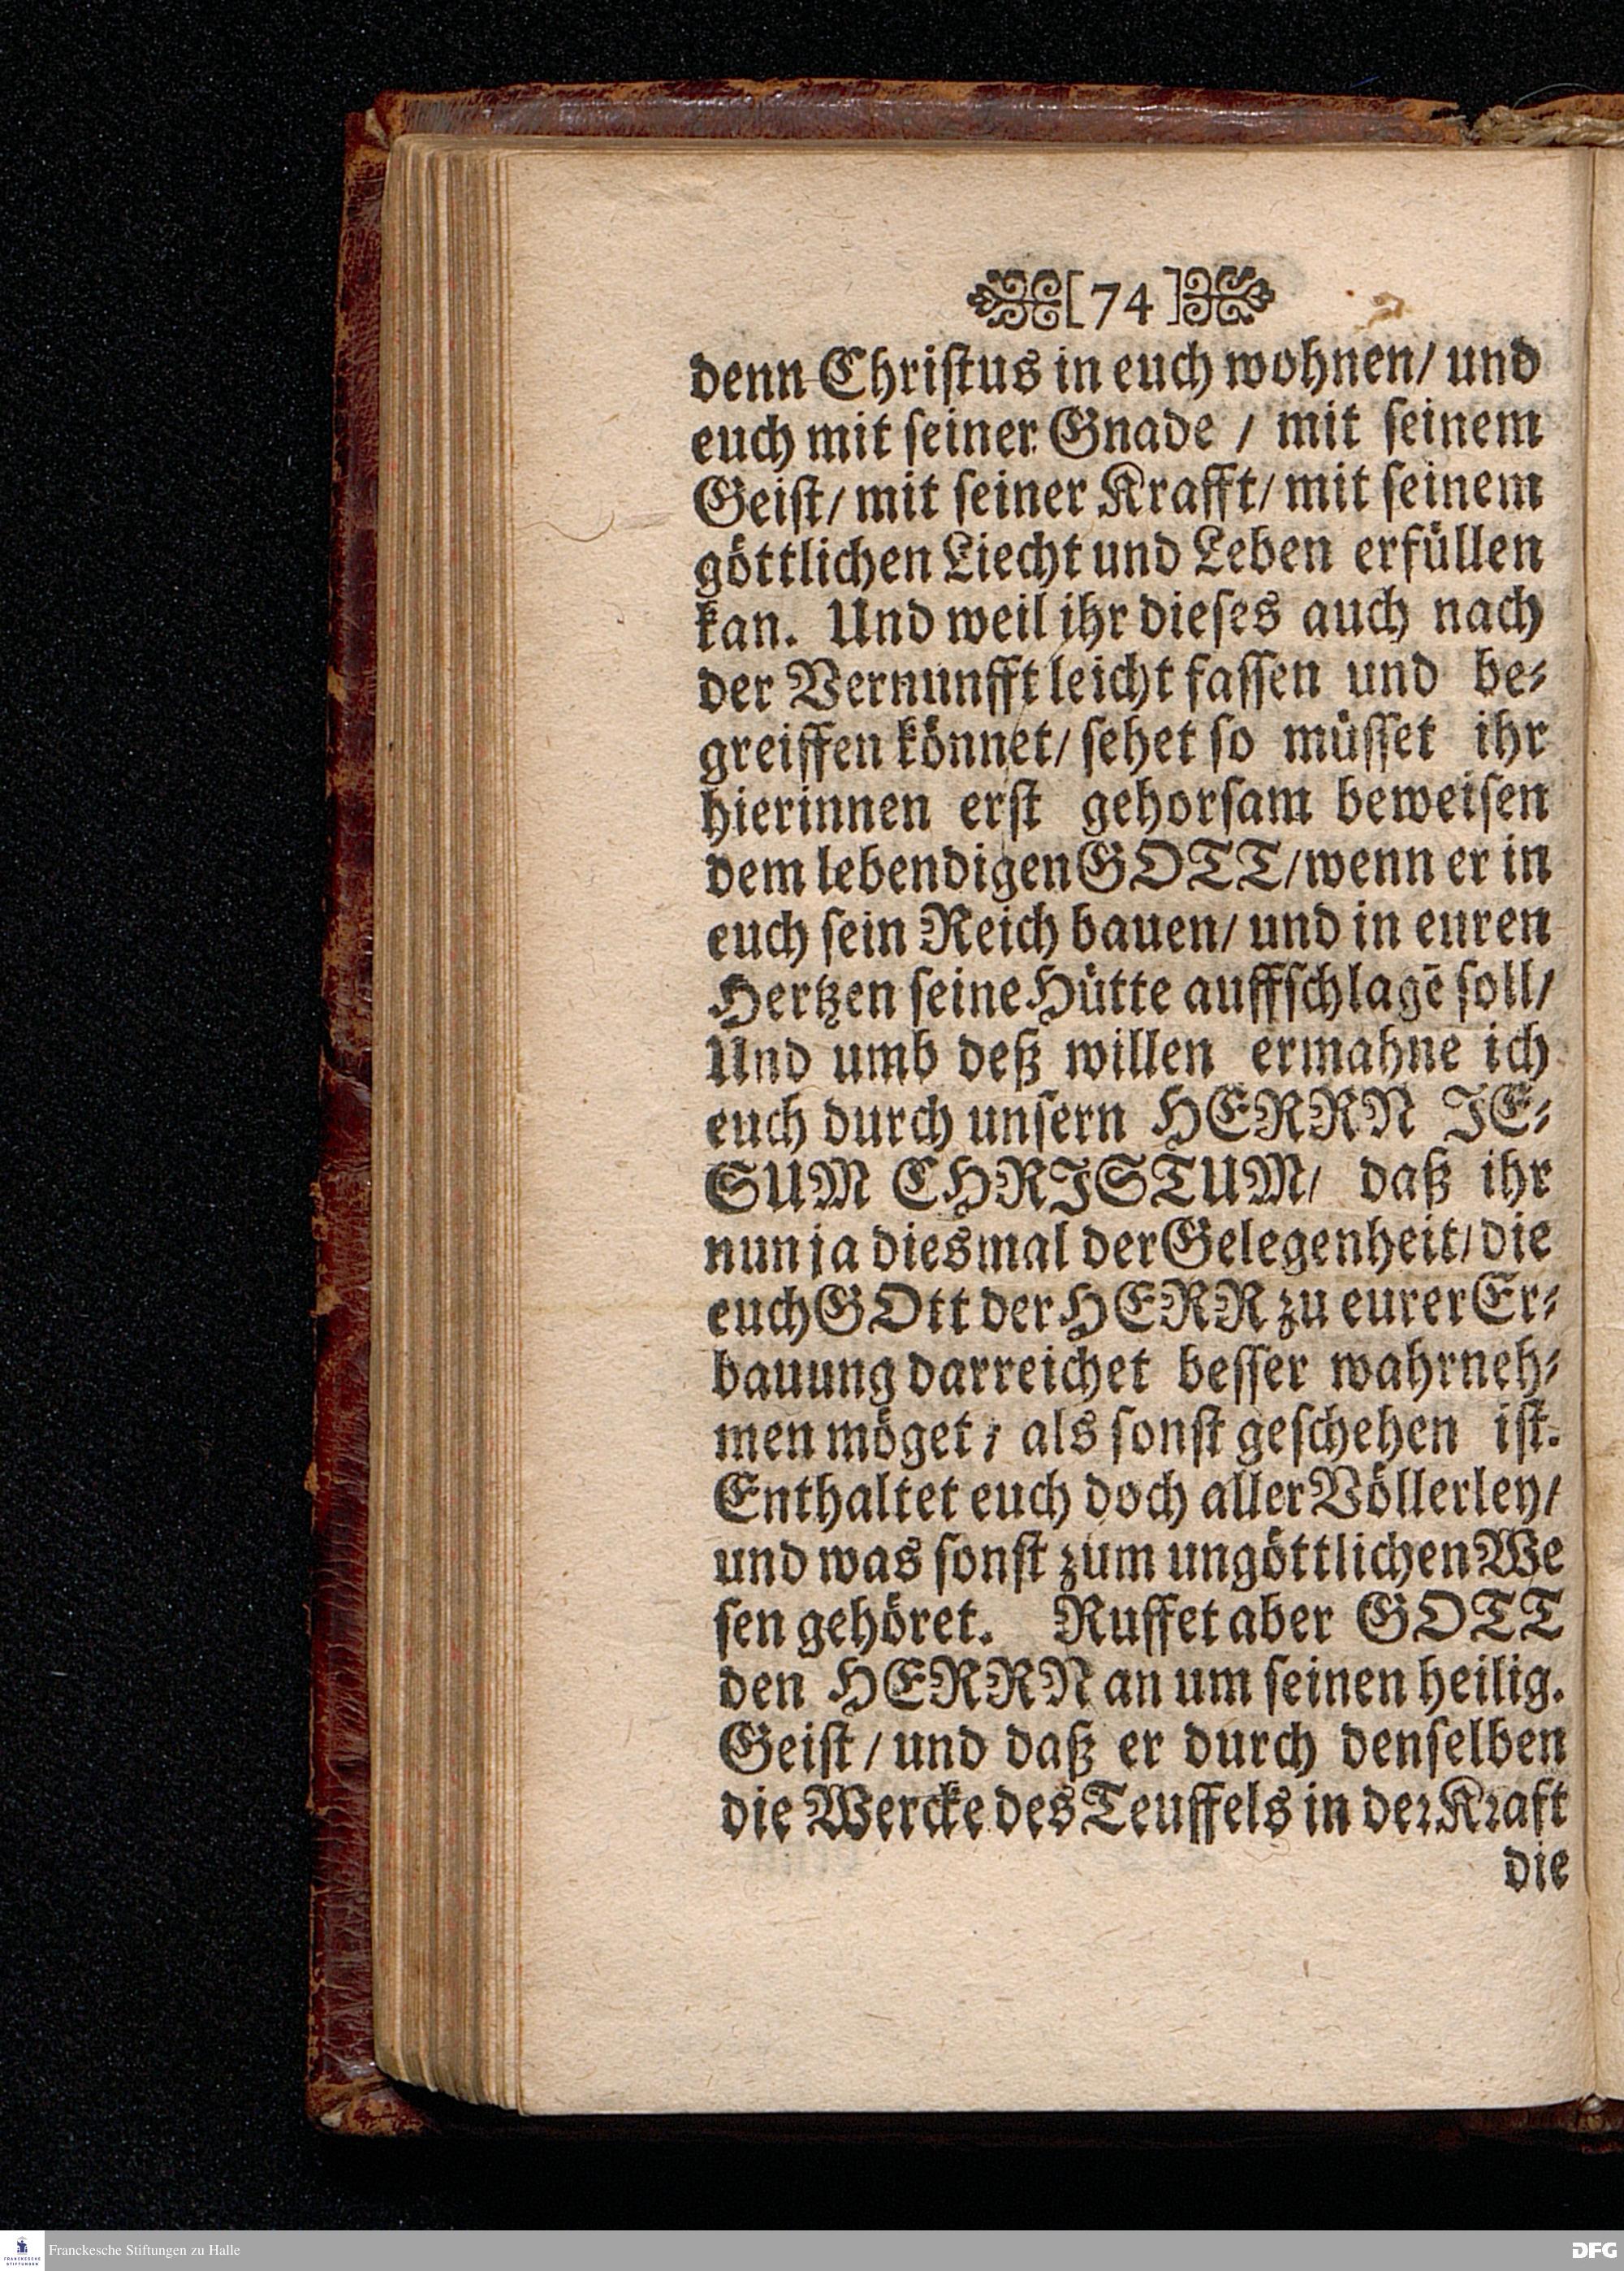 [74]
denn Christus in euch wohnen/ und
euch mit seiner Gnade / mit seinem
Geist/ mit seiner Krafft/ mit seinem
göttlichen Liecht und Leben erfüllen
kan. Und weil ihr dieses auch nach
der Vernunfft leicht fassen und be-
greiffen könnet/ sehet so müsset ihr
hierinnen erst gehorsam beweisen
dem lebendigen GOTT/ wenn er in
euch sein Reich bauen/ und in euren
Hertzen seine Hütte auffschlagē soll/
Und umb deß willen ermahne ich
euch durch unsern HERRN JE-
SUM CHRISTUM/ daß ihr
nun ja diesmal der Gelegenheit/ die
euch GOtt der HERR zu eurer Er-
bauung darreichet besser wahrneh-
men möget; als sonst geschehen ist.
Enthaltet euch doch aller Völlerley/
und was sonst zum ungöttlichen We
sen gehöret. Ruffet aber GOTT
den HERRN an um seinen heilig.
Geist / und daß er durch denselben
die Wercke des Teuffels in der Kraft
die
FRANCKESCHE STIFTUNGEN
Franckesche Stiftungen zu Halle
DFG